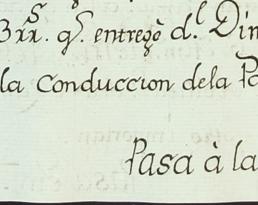 3xx.s q.s entregò d.l Din
la Conduccion dela Pa
Pasa à la